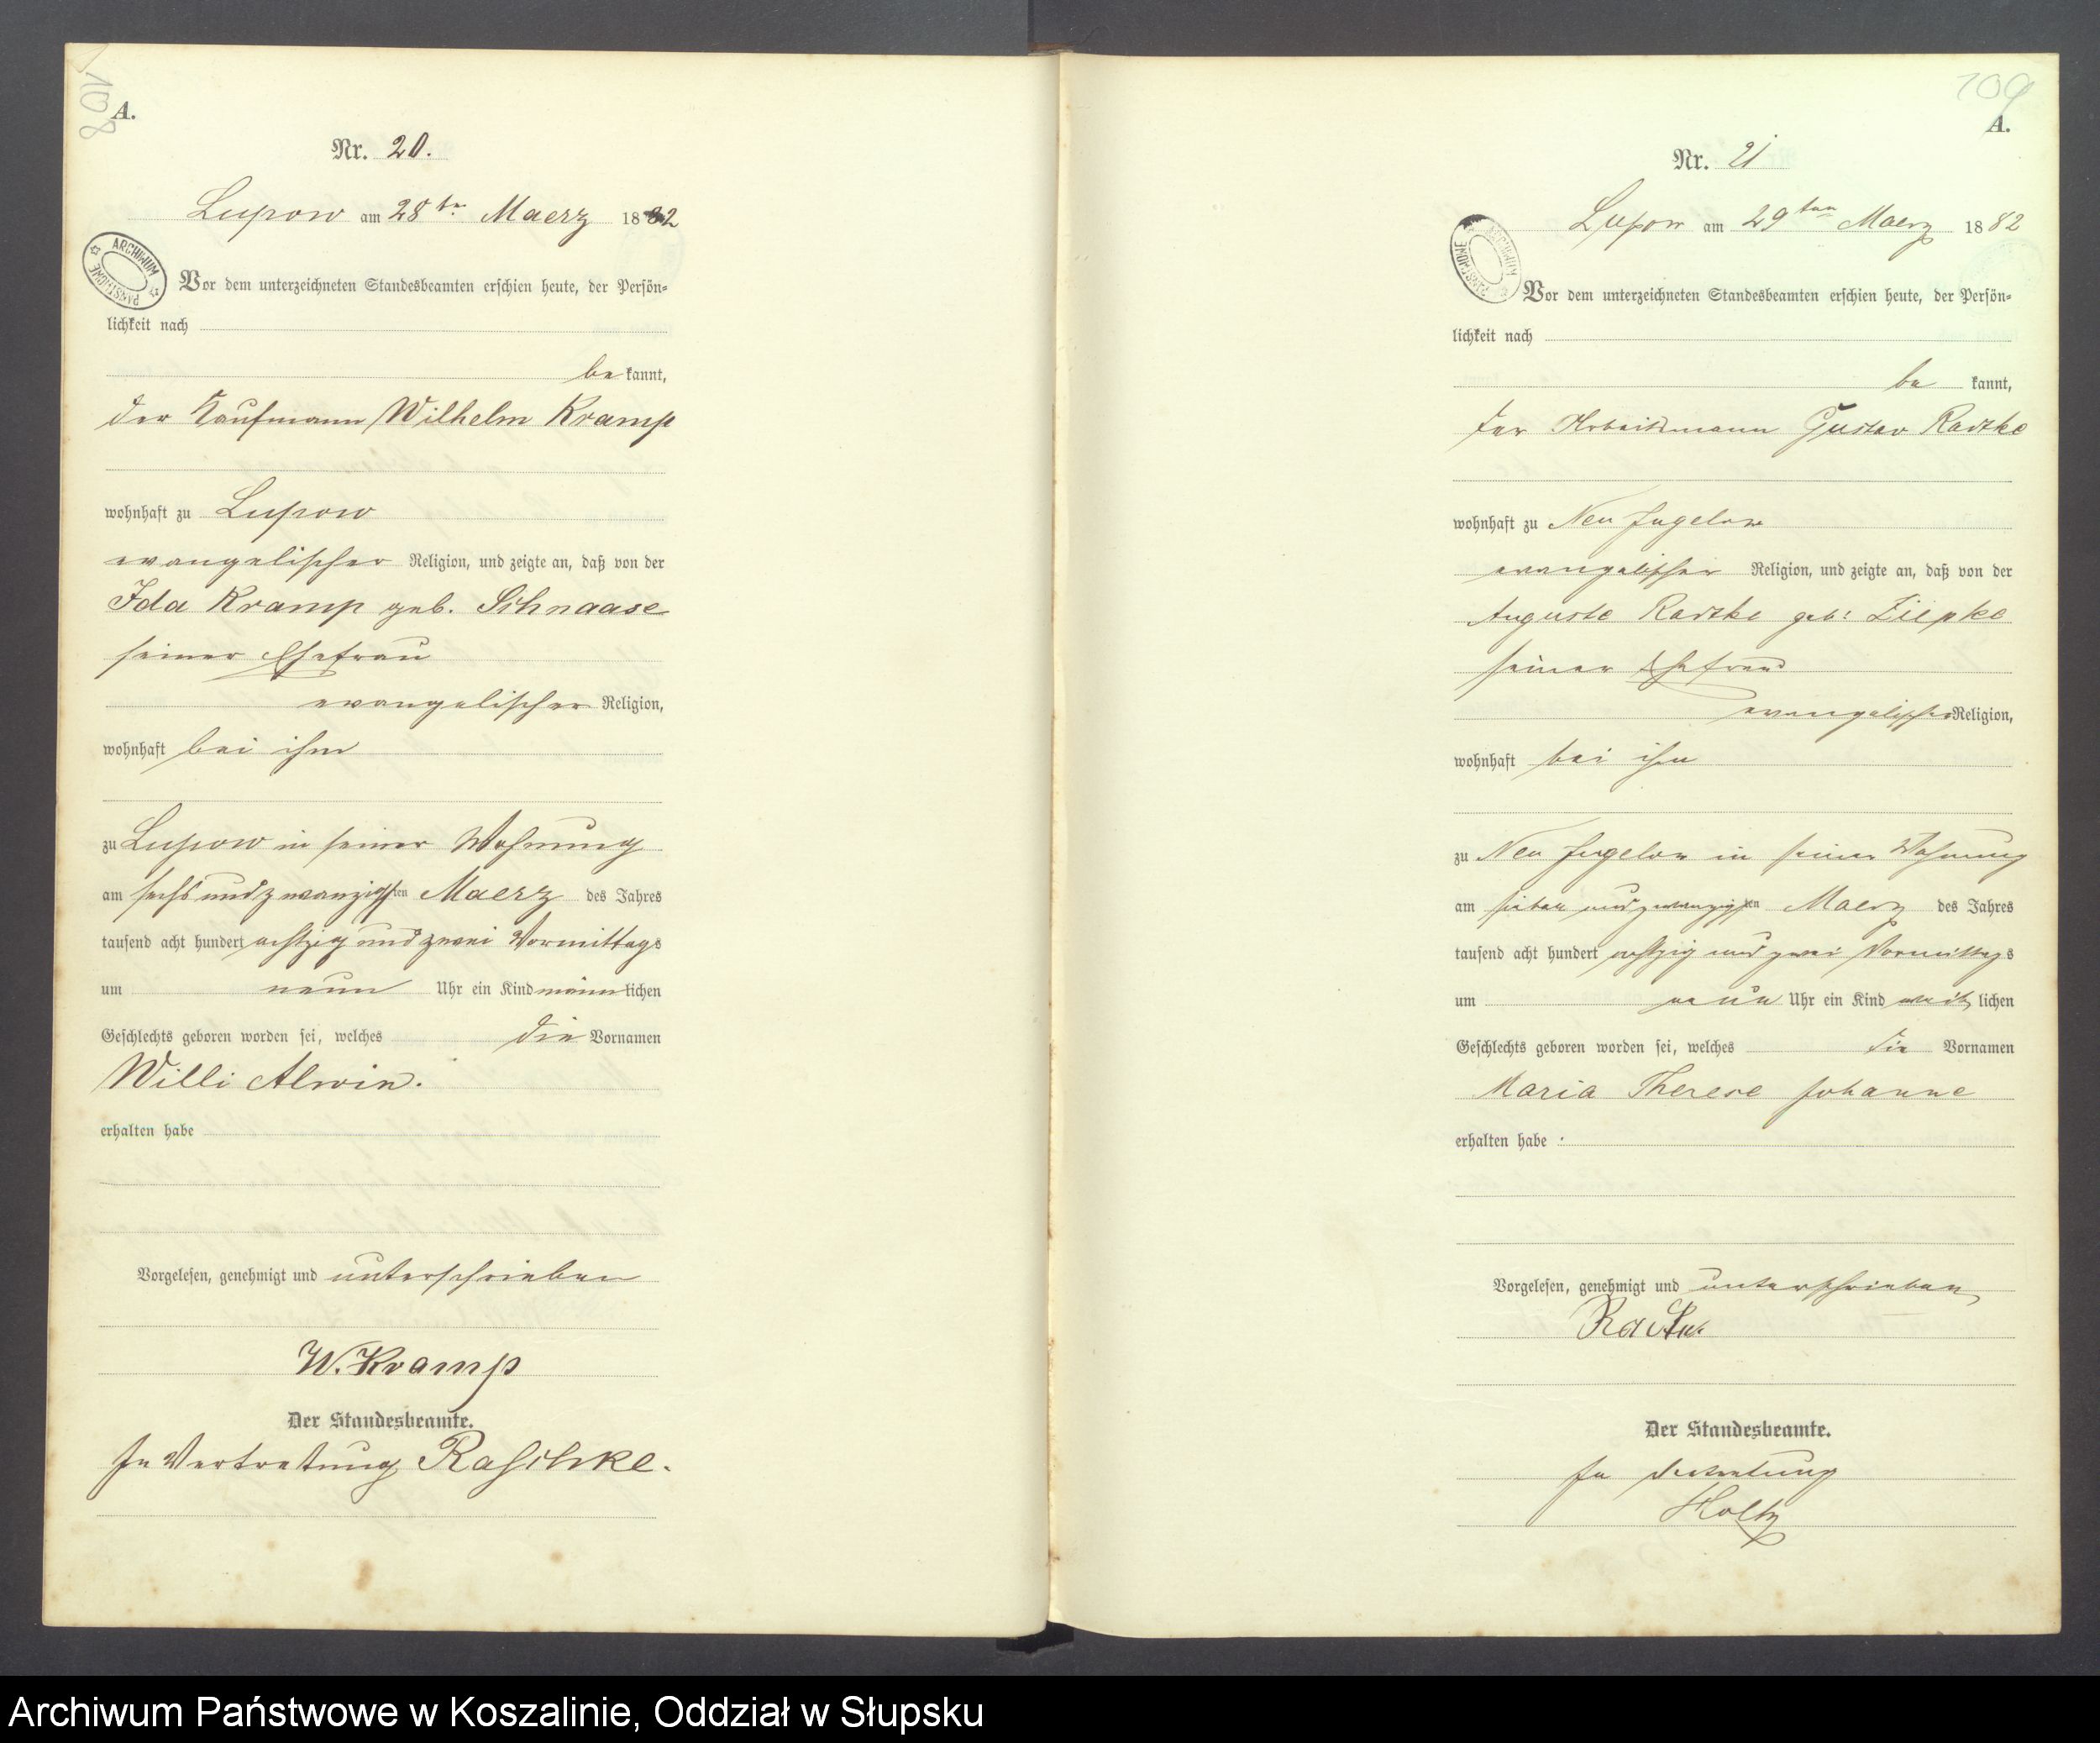 108
A.
Nr. 20.
Lupow am 28ten Maerz 1882
ARCHIWUM PAŃSTWOWE
Vor dem unterzeichneten Standesbeamten erschien heute, der Persön-
lichkeit nach
be kannt,
der Kaufmann Wilhelm Kramp
wohnhaft zu Lupow
evangelischer Religion, und zeigte an, daß von der
Ida Kramp geb. Schnaase
seiner Ehefrau
evangelischer Religion,
wohnhaft bei ihm
zu Lupow in seiner Wohnung
am sechs und zwanzigsten Maerz des Jahres
tausend acht hundert achtzig und zwei Vormittags
um neun Uhr ein Kind männlichen
Geschlechts geboren worden sei, welches die Vornamen
Willi Alwin.
erhalten habe
Vorgelesen, genehmigt und unterschrieben
W. Kramp
Der Standesbeamte.
In Vertretung Raschke.
109
A.
Nr. 21
Lupow am 29ten Maerz 1882
ARCHIWUM PAŃSTWOWE
Vor dem unterzeichneten Standesbeamten erschien heute, der Persön-
lichkeit nach
be kannt,
der Arbeitsmann Gustav Radtke
wohnhaft zu Neu Jugelow
evangelischer Religion, und zeigte an, daß von der
Auguste Radtke geb: Ziepke
seiner Ehefrau
evangelischer Religion,
wohnhaft bei ihm
zu Neu Jugelow in seiner Wohnung
am sieben und zwanzigsten Maerz des Jahres
tausend acht hundert achtzig und zwei Vormittags
um neun Uhr ein Kind weib lichen
Geschlechts geboren worden sei, welches die Vornamen
Maria Therese Johanne
erhalten habe
Vorgelesen, genehmigt und unterschrieben
Der Standesbeamte.
In Vertretung
Holtz
Archiwum Państwowe w Koszalinie, Oddział w Słupsku